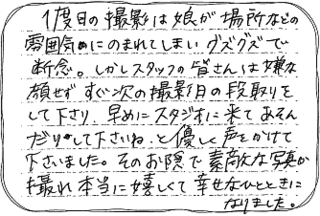 1度目の撮影は娘が場所などの
雰囲気にのまれてしまい グズグズで
断念。しかしスタッフの皆さんは嫌な
顔せず すぐ次の撮影日の段取りを
して下さり、早めにスタジオに来てあそん
だりして下さいね、と優しく声をかけて
下さいました。そのお陰で 素敵な写真が
撮れ本当に嬉しくて 幸せなひとときに
なりました。